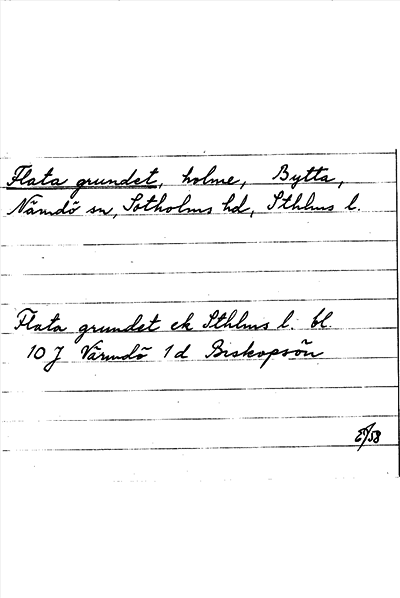 Flata grundet, holme, Bytta,
Nämdö sn, Sotholms hd, Sthlms l.
Flata grundet ek Sthlms l. bl.
10 J Värmdö 1 d Biskopsön
/58